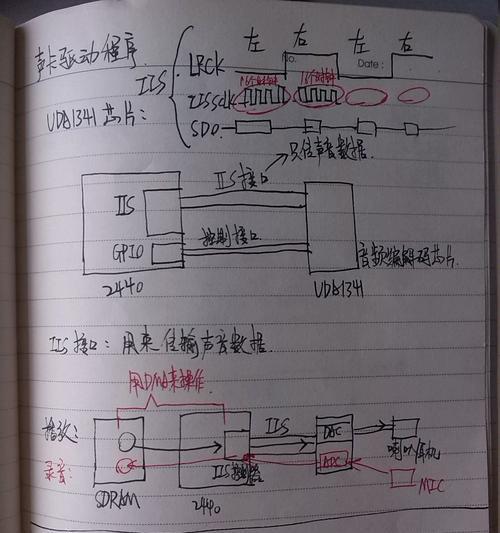 左 右 左 右
声卡驱动程序
IIS
LRCK
No.
Date:
16个时钟 16个时钟
IISSCLK
UDA1341芯片:
SDO
只传声音数据.
IIS接口
IIS
控制接口
GPIO
音频编解码芯片.
2440
UDA1341
IIS接口: 用来传输声音数据.
用DMA来操作.
播放:
IIS
DAC
喇叭/耳机
录音:
ADC
IIS控制器
SDRAM
2440
MIC